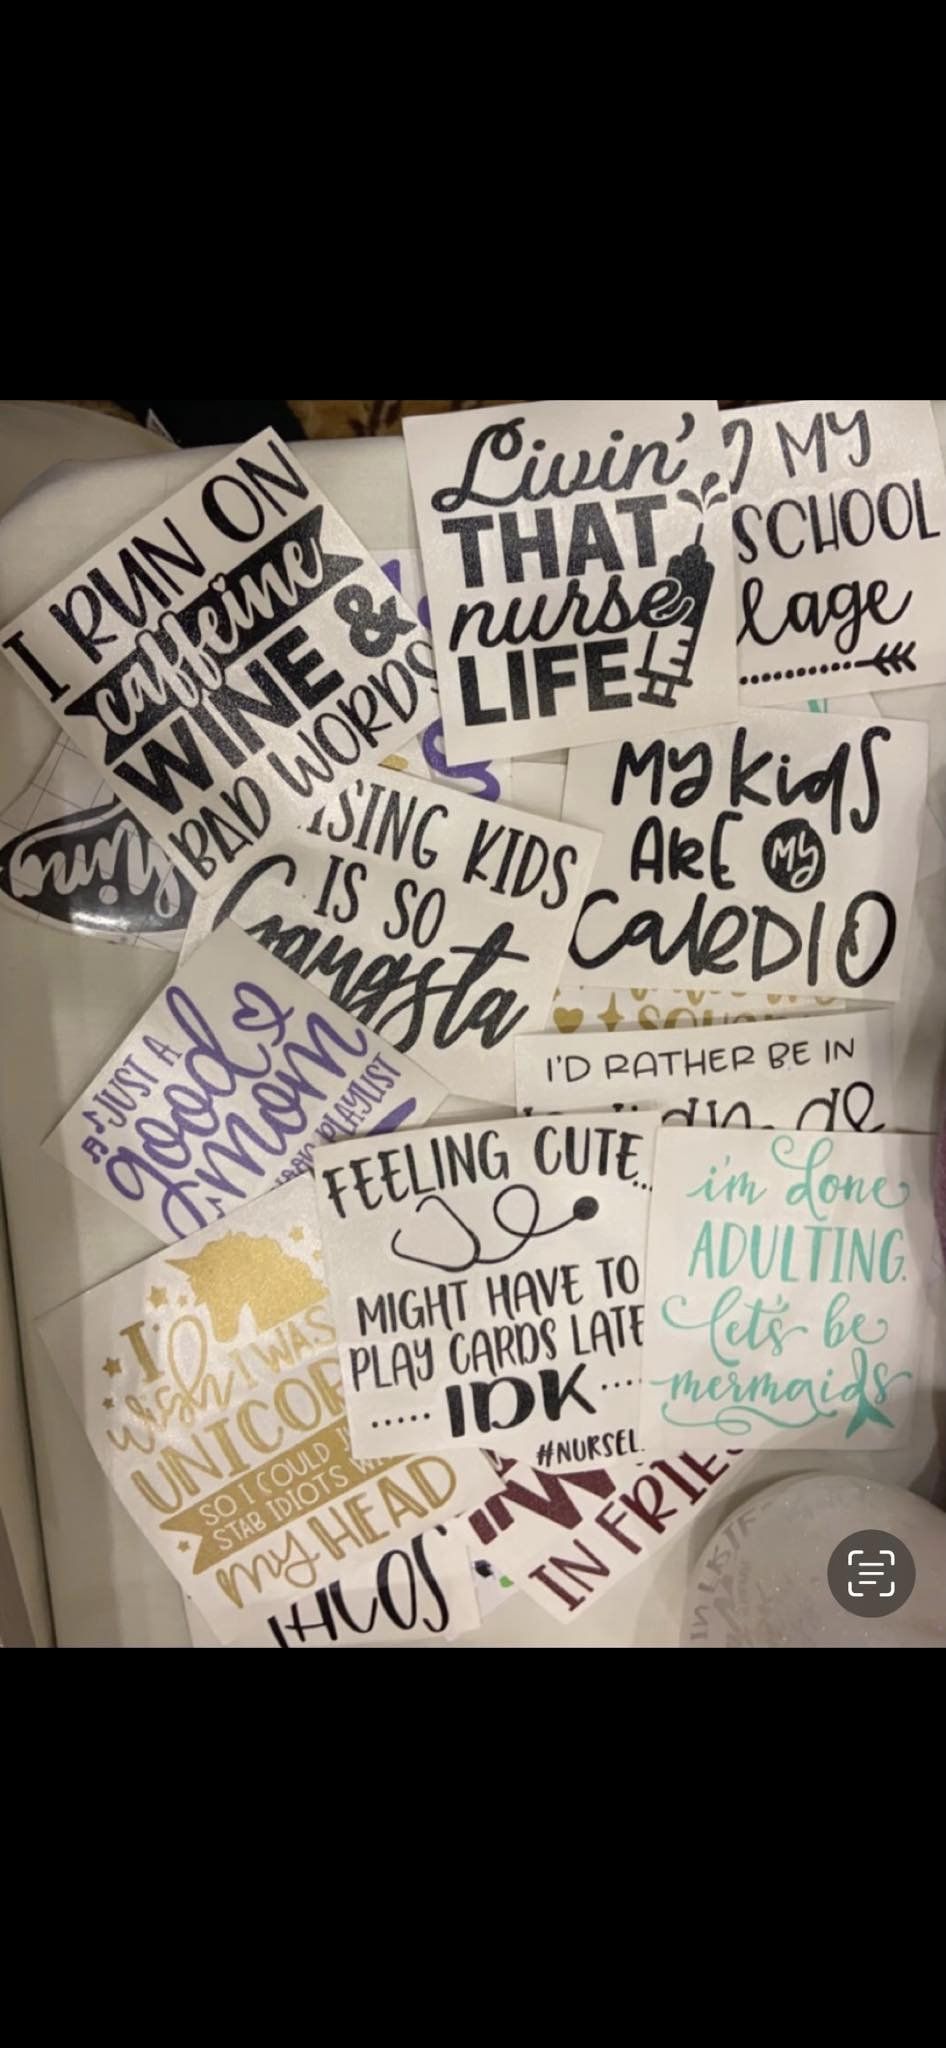 I RUN ON
caffeine
WINE &
BAD WORDS
Livin'
THAT
nurse
LIFE
MY
SCHOOL
My kids
ARE MY
CARDIO
ISING KIDS
IS SO
Gangsta
JUST A
good
mom
PLAYLIST
I'D RATHER BE IN
FEELING CUTE...
MIGHT HAVE TO
PLAY CARDS LATE
..... IDK ....
#NURSEL
i'm done
ADULTING.
let's be
mermaids
I
wish I WAS
UNICOR
SO I COULD
STAB IDIOTS
my HEAD
IN FRIE